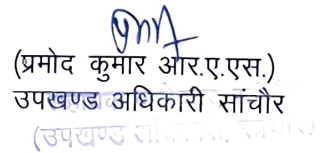 (प्रमोद कुमार आर.ए.एस.)
उपखण्ड अधिकारी सांचौर
(उपखण्ड